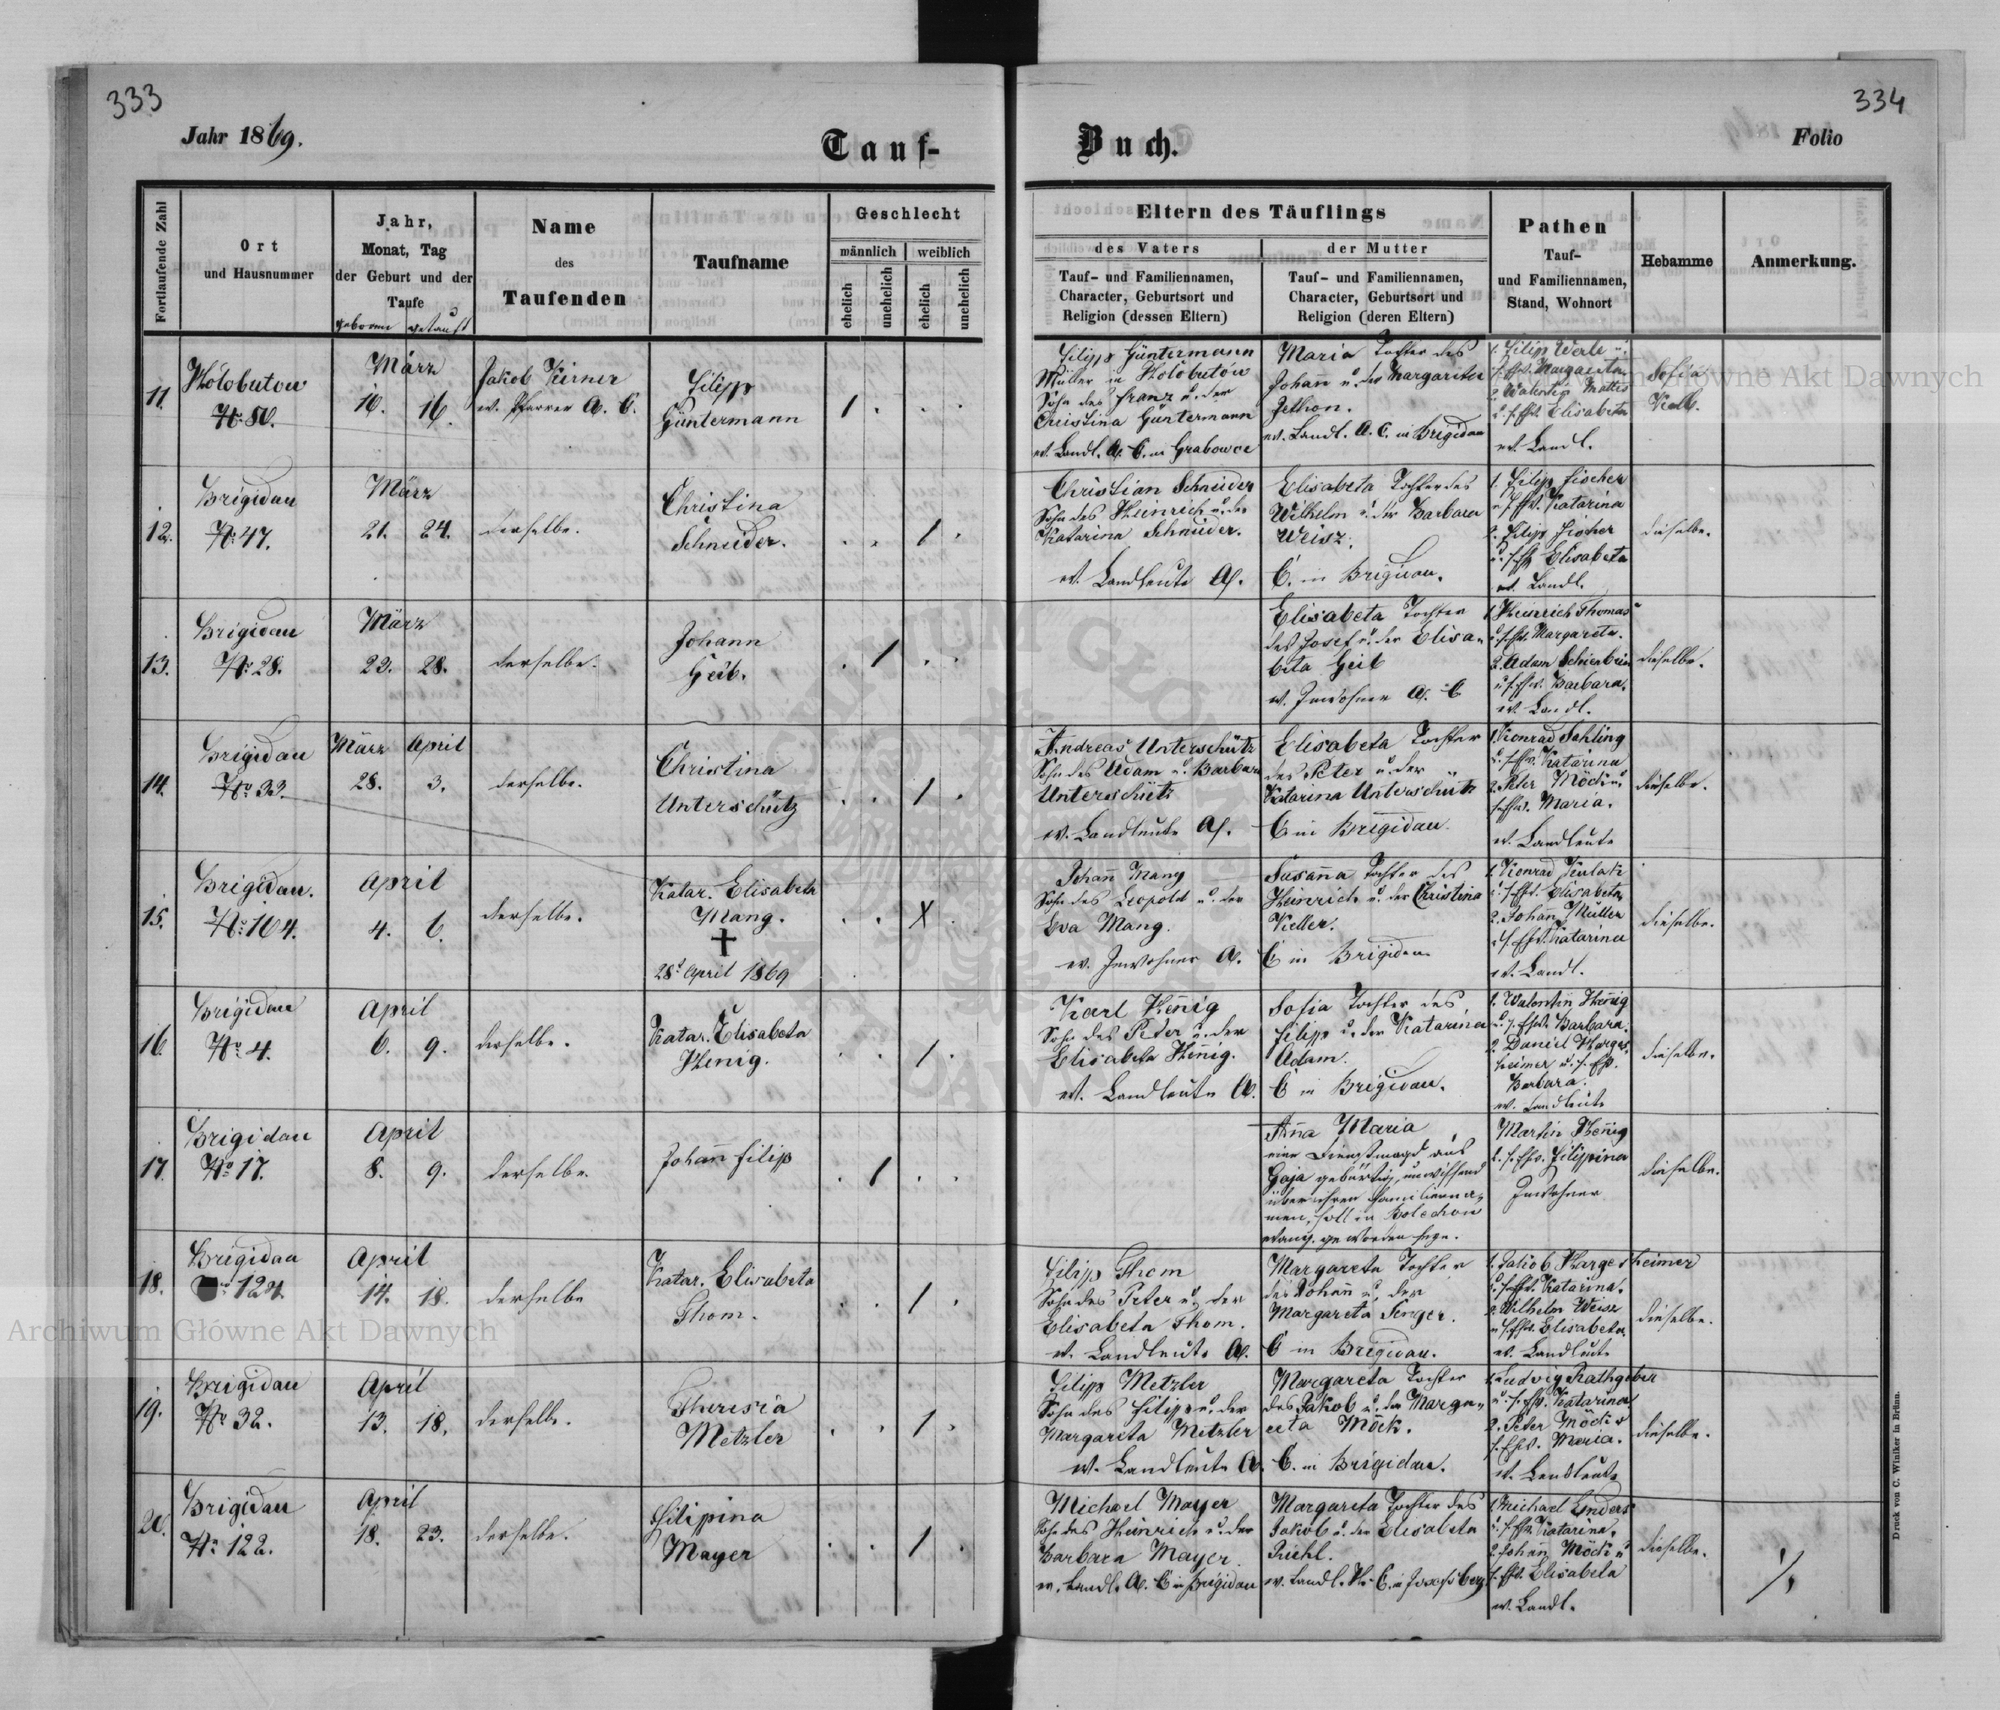 333
334
Jahr 1869.
Tauf-
Buch.
Folio
Fortlaufende Zahl
Ort
und Hausnummer
Jahr,
Monat, Tag
der Geburt und der
Taufe
geboren getauft
Name
des
Taufenden
Taufname
Geschlecht
männlich
weiblich
ehelich
unehelich
ehelich
unehelich
Eltern des Täuflings
des Vaters
der Mutter
Tauf- und Familiennamen,
Character, Geburtsort und
Religion (dessen Eltern)
Tauf- und Familiennamen,
Character, Geburtsort und
Religion (deren Eltern)
Pathen
Tauf-
und Familiennamen,
Stand, Wohnort
Hebamme
Anmerkung.
11.
Hołobutow
März
16. 16.
Jakob Kirner
ev. Pfarrer A. C.
Filipp
Güntermann
Filipp Güntermann
Müller in Hołobutow
Sohn des Franz u. der
Christina Güntermann
ev. Landl. A. C. in Grabowce
Maria Tochter des
Johañ u. der Margareta
ev. Landl. A. C. in Brigidau
1. Filip Werle u.
s. Ehw. Margareta
2. Walentin Mattes
u. s. Ehw. Elisabeta
ev. Landl.
Sofia
Kolb.
12.
Brigidau
No 47.
März
21. 24.
derselbe.
Christina
Schneider.
Christian Schneider
Sohn des Heinrich u. der
Katarina Schneider.
ev. Landleute A.
Elisabeta Tochter des
Wilhelm u. der Barbara
Weisz.
C. in Brigidau.
1. Filip Fischer
u. s. Ehw. Katarina
2. Filip Fischer
u. s. Ehw. Elisabeta
ev. Landl.
dieselbe.
13.
Brigidau
No 28.
März
23. 28.
derselbe.
Johann
Geib.
Elisabeta Tochter
des Josef u. der Elisa-
beta Geib
ev. Inwohner A. C
1. Heinrich Thomas
u. s. Ehw. Margareta.
2. Adam Schierbein
u. s. Ehw. Barbara.
ev. Landl.
dieselbe.
14.
Brigidau
No 33.
März April
28. 3.
derselbe.
Christina
Unterschütz
Andreas Unterschütz
Sohn des Adam u. Barbara
Unterschütz
ev. Landleute A.
Elisabeta Tochter
des Peter u. der
Katarina Unterschütz
C in Brigidau.
1. Konrad Sahling
u. s. Ehw. Katarina
2. Peter Möck u.
s. Ehw. Maria.
ev. Landleute
dieselbe.
15.
Brigidau.
No 164.
April
4. 6.
derselbe.
Katar. Elisabeta
Mang.
28t April 1869
Johañ Mang
Sohn des Leopold u. der
Eva Mang.
ev. Inwohner A.
Susaña Tochter des
Heinrich u. der Christina
Keller.
C in Brigidau
u. s. Ehw. Elisabeta
2. Johañ Müller
u. s. Ehw. Katarina
ev. Landl.
dieselbe.
16.
Brigidau
No 4.
April
6. 9.
derselbe.
Katar. Elisabeta
Henig.
Karl Heñig
Sohn des Peter u. der
Elisabeta Heñig.
ev. Landleute A.
Sofia Tochter des
Filipp u. der Katarina
Adam.
C in Brigidau.
1. Walentin Heñig
u. s. Ehw. Barbara.
2. Daniel Harges-
heimer u. s. Ehw.
Barbara.
ev. Landleute
dieselbe.
17.
Brigidau
No 17.
April
8. 9.
derselbe.
Johañ Filip
Aña Maria
eine Dienstmagd aus
Gaja gebürtig, unwissend
über ihren Familienna-
men, soll in Bolechow
evang. geworden seyn.
Martin Heñig
u. s. Ehw. Filippina
Inwohner
dieselbe.
18.
Brigidau
124.
April
14. 18.
derselbe
Katar. Elisabeta
Thom.
Filipp Thom
Sohn des Peter u. der
Elisabeta Thom.
ev. Landleute A.
Margareta Tochter
des Johañ u. der
Margareta Senger.
C in Brigidau.
1. Jakob Hargesheimer
u. s. Ehw. Katarina.
2. Wilhelm Weisz
u. s. Ehw. Elisabeta.
ev. Landleute
dieselbe.
19.
Brigidau
No 32.
April
13. 18.
derselbe.
Theresia
Metzler
Filipp Metzler
Sohn des Filipp u. der
Margareta Metzler
ev. Landleute A.
Margareta Tochter
des Jakob u. der Marga-
reta Möck.
C. in Brigidau.
1. Ludwig Rathgeber
u. s. Ehw. Katarina
2. Peter Möck u
s. Ehw. Maria.
ev. Landleute
dieselbe.
20.
Brigidau
No 122.
April
18. 23.
derselbe.
Filipina
Mayer
Michael Mayer
Sohn des Heinrich u. der
Barbara Mayer
ev. Landl. A. C in Brigidau
Margareta Tochter des
Jakob u. der Elisabeta
Riehl.
ev. Landl. H. C. in Josefsberg
1. Michael Enders
u. s. Ehw. Katarina.
2. Johañ Möck u
s. Ehw. Elisabeta
ev. Landl.
dieselbe.
Druck von C. Winiker in Brünn.
Archiwum Główne Akt Dawnych
Główne Akt Dawnych